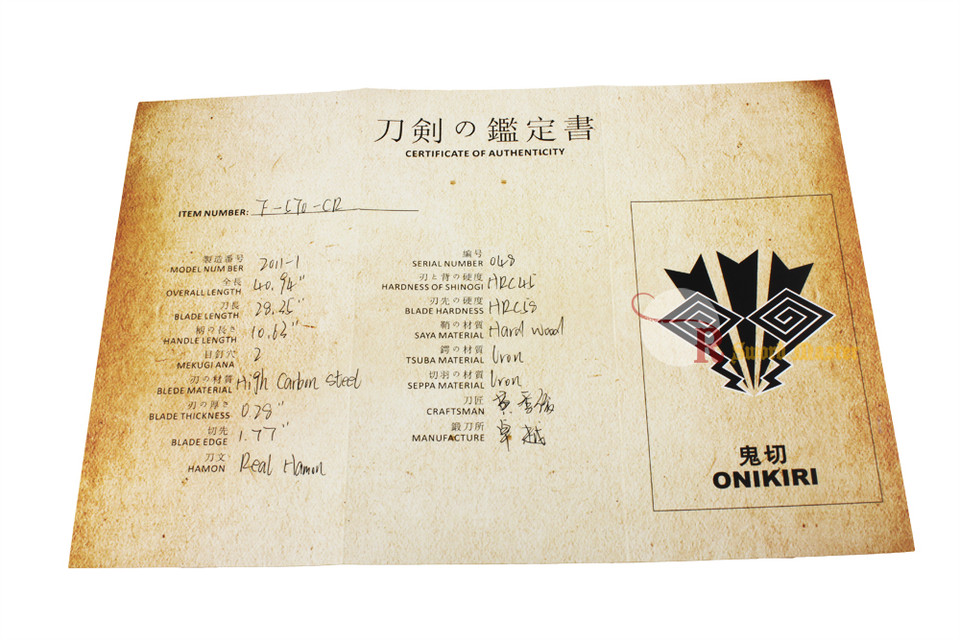 刀剣の鑑定書
CERTIFICATE OF AUTHENTICITY
ITEM NUMBER: F-570-CR
製造番号
MODEL NUMBER 2011-1
全長
OVERALL LENGTH 40.94"
刀長
BLADE LENGTH 28.25"
柄の長さ
HANDLE LENGTH 10.63"
目釘穴
MEKUGI ANA 2
刃の材質
BLEDE MATERIAL High Carbon Steel
刃の厚さ
BLADE THICKNESS 0.28"
切先
BLADE EDGE 1.77"
刀文
HAMON Real Hamon
編号
SERIAL NUMBER 048
刃と背の硬度
HARDNESS OF SHINOGI HRC45
刃先の硬度
BLADE HARDNESS HRC58
鞘の材質
SAYA MATERIAL Hard wood
鍔の材質
TSUBA MATERIAL Iron
切羽の材質
SEPPA MATERIAL Iron
刀匠
CRAFTSMAN
鍛刀所
MANUFACTURE 卓越
鬼切
ONIKIRI